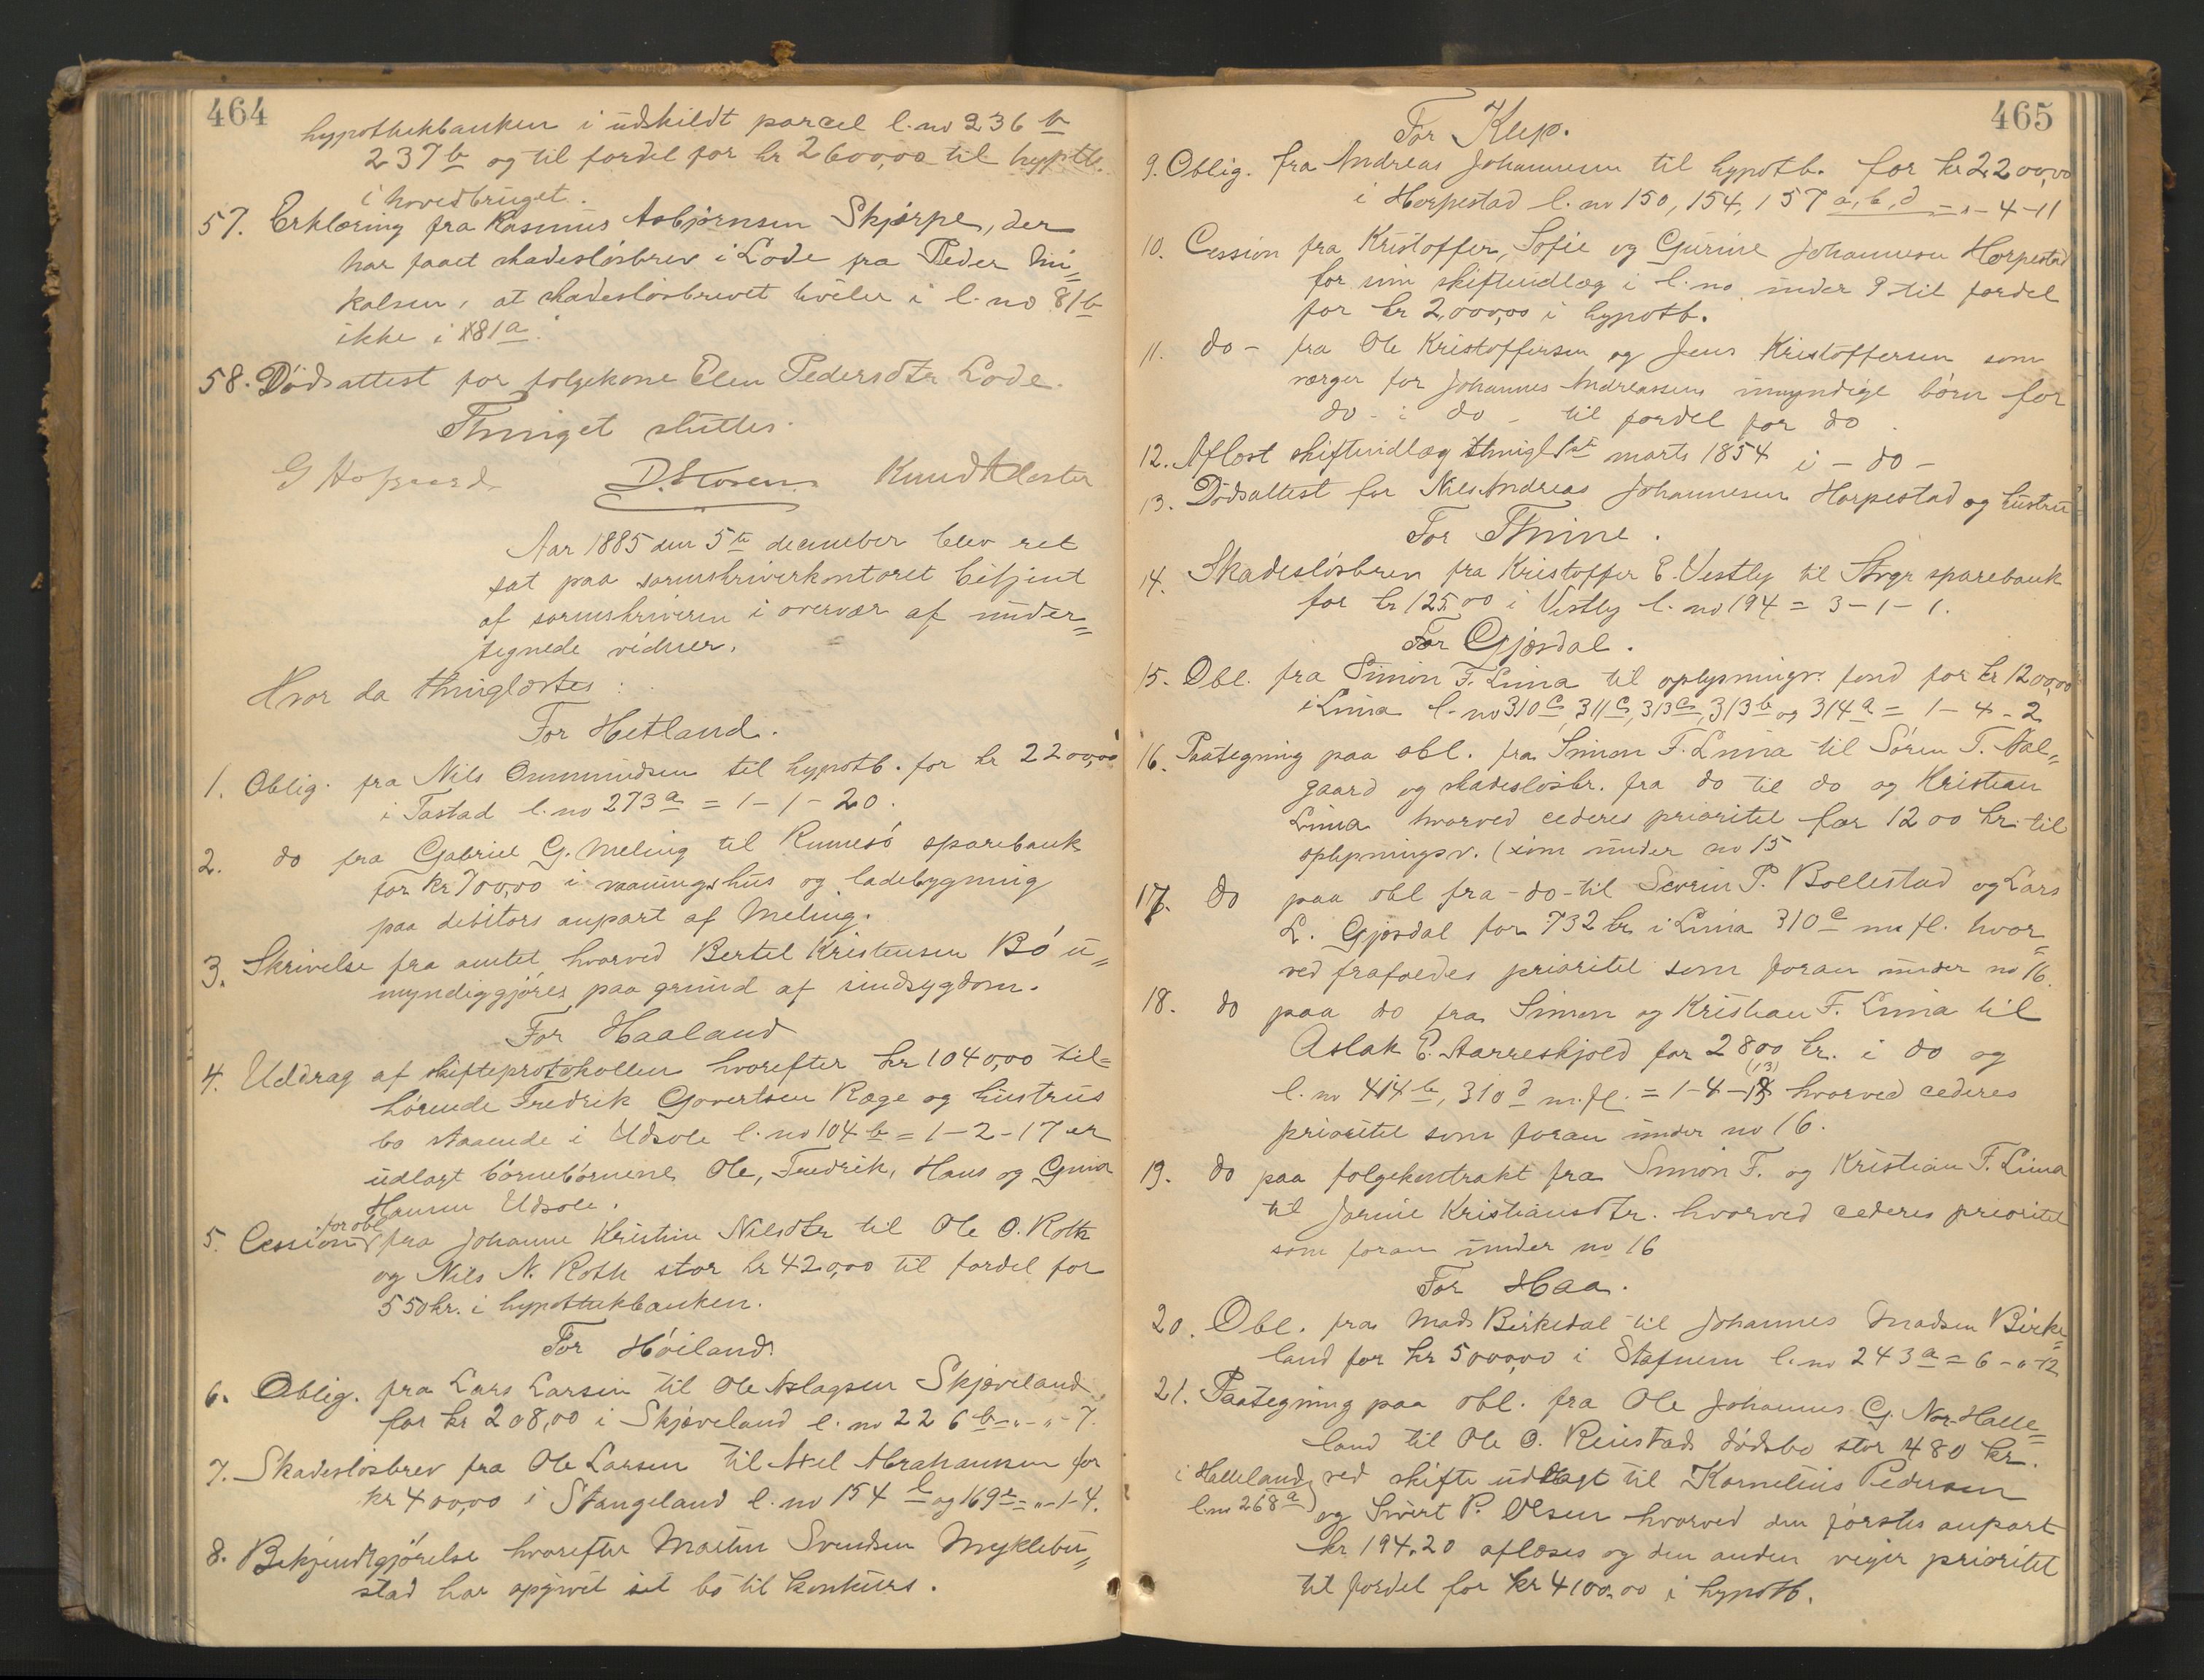 464
hypothekbanken i udskildt parcel l. no 236 b
237 b og til fordel for kr 2600,00 til hypoth.
i hovedbruget.
57. Erklæring fra Rasmus Asbjørnsen Skjørpe, der
har faaet skadesløsbrev i Lode fra Peder Mi=
kalsen, at skadesløsbrevet hviler i l. no 81 b
ikke i 81 a.
58. Dødsattest for folgekone Elen Pedersdtr Lode.
Thinget sluttes.
G Hofgaard Knud Kloster
Aar 1885 den 5te december blev ret
sat paa sorenskriverkontoret betjent
af sorenskriveren i overvær af under=
tegnede vidner.
Hvor da thinglæstes:
For Hetland.
1. Oblig. fra Nils Ommundsen til hypotb. for kr 2200,00
i Tastad l. no 273 a = 1-1-20.
2. do fra Gabriel G. Meling til Rennesø sparebank
for kr 700,00 i vaaningshus og ladebygning
paa debitors anpart af Meling.
3. Skrivelse fra amtet hvorved Bertel Kristensen Bø u=
myndiggjøres paa grund af sindsygdom.
For Haaland
4. Uddrag af skifteprotokollen hvorefter kr 1040,00 til=
hørende Fredrik Govertsen Ræge og hustrus
bo staaende i Udsole l. no 104 b = 1-2-17 er
udlagt børnebørnene Ole, Fredrik, Hans og
Hansen Udsole.
5. Cession for obl fra Johanne Kristine Nilsdtr til Ole O. Roth
og Nils N. Roth stor kr 420,00 til fordel for
550 kr. i hypothekbanken.
For Høiland.
6. Oblig. fra Lars Larsen til Ole Aslagsen Skjæveland
for kr 208,00 i Skjæveland l. no 226 b = "-"-7.
7. Skadesløsbrev fra Ole Larsen til Axel Abrahamsen for
kr 400,00 i Stangeland l. no 154 l og 169 e = "-1-4.
8. Bekjendtgjørelse hvorefter Martin Svendsen Myklebu=
stad har opgivet sit bo til konkurs.
465
For Klep.
9. Oblig. fra Andreas Johannesen til hypotb. for kr 2200,00
i Horpestad l. no 150, 154, 157 a, b, d = "-4-11
10. Cession fra Kristoffer, Sofie og Gurine Johannesen Horpestad
for sine skifteudlæg i l. no. under 9 til fordel
for kr 2,000,00 i hypotb.
11. do - fra Ole Kristoffersen og Jens Kristoffersen som
værger for Johannes Andreassens umyndige børn for
do - i do - til fordel for do.
12. Aflæst skifteudlæg thinglæst marts 1854 i - do -
13. Dødsattest for Nils Andreas Johannesen Horpestad og hustru
For Thime.
14. Skadesløsbrev fra Kristoffer E. Vestly til Stvgr sparebank
for kr 125,00 i Vestly l. no 194 = 3-1-1.
For Gjesdal.
15. Obl. fra Simon F. Lima til oplysningsv. fond for kr 1200,00
i Lima l. no 310 c, 311 c, 313 c, 313 b og 314 a = 1-4-2
16. Paategning paa obl. fra Simon F. Lima til Søren T. Aal=
gaard og skadesløsbr. fra do til do og Kristian
Lima hvorved cederes prioritet for 1200 kr. til
oplysningsv. (som under no 15
17. do paa obl fra - do - til Sevrin P. Bollestad og Lars
L. Gjesdal for 732 kr i Lima 310 c m fl. hvor=
ved frafaldes prioritet som foran under no 16.
18. do paa do fra Simon og Kristian F. Lima til
Aslak E. Aarreskjold for 2800 kr. i do og
l. no 414 b, 310 d m. fl. = 1-4-13 (13) hvorved cederes
prioritet som foran under no 16.
19. do paa folgekontrakt fra Simon F. og Kristian F. Lima
til Jorine Kristiansdtr. hvorved cederes prioritet
som foran under no 16
For Haa.
20. Obl. fra Mads Birkedal til Johannes Madsen Birke=
land for kr 5000,00 i Stafnem l. no 243 a = 6-"-12
21. Paategning paa obl. fra Ole Johannes G. Nor-Halle=
land til Ole O. Reiestads dødsbo stor 480 kr.
i Halleland l. no 268 a) ved skifte udlagt til Kornelius Pedersen
og Sivert P. Olsen hvorved den førstes anpart
kr 194.20 aflæses og den anden viger prioritet
til fordel for kr 4100.00 i hypotb.